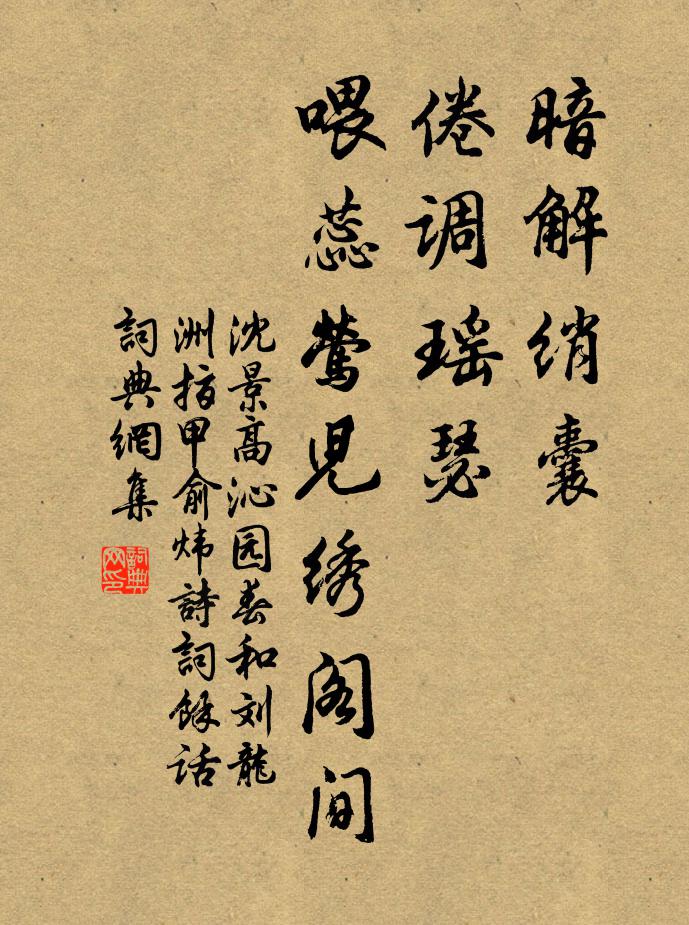 暗解绡囊
倦调瑶瑟
喂蕊莺児绣阁间
沈景高沁园春和刘龍
洲指甲俞炜詩詞餘话
詞典網集
詞典网印